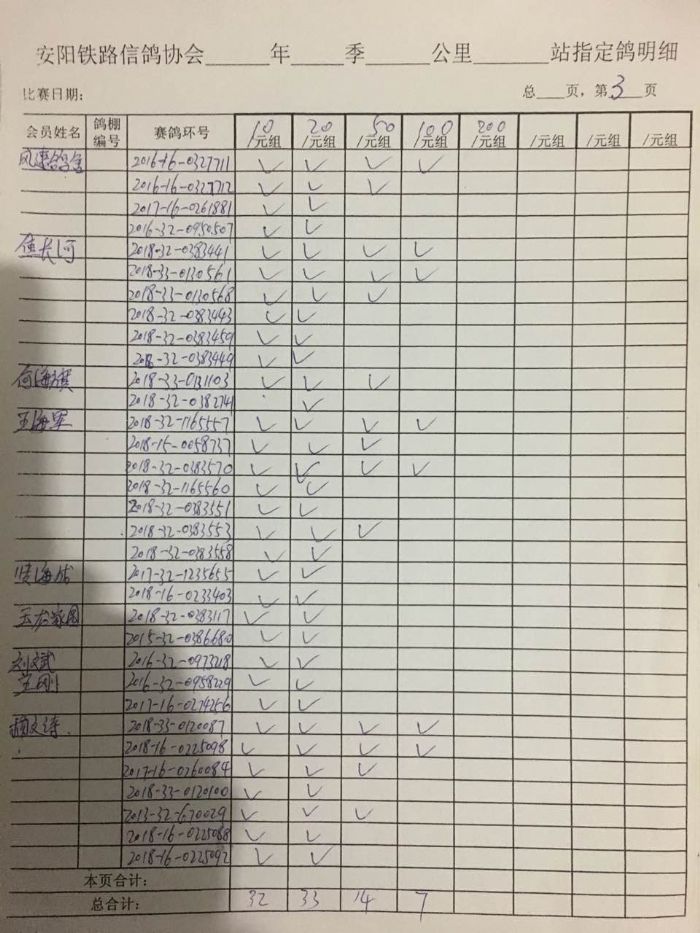 安阳铁路信鸽协会______年_____季______公里_______站指定鸽明细
比赛日期: 总___页,第3页
会员姓名 鸽棚编号 赛鸽环号 10/元组 20/元组 50/元组 100/元组 200/元组 /元组 /元组 /元组
2016-16-0327711 ✓ ✓ ✓ ✓
2016-16-0327712 ✓ ✓ ✓
2017-16-0261881 ✓ ✓
2016-32-0950507 ✓ ✓
长河 2018-32-0383441 ✓ ✓ ✓ ✓
2018-33-0130561 ✓ ✓ ✓ ✓
2018-33-0130568 ✓ ✓ ✓
2018-32-0383443 ✓ ✓
2018-32-0383459 ✓ ✓
2018-32-0383449 ✓ ✓
何海旗 2018-33-0131103 ✓ ✓ ✓
2018-32-0382741 ✓
王海军 2018-32-1165557 ✓ ✓ ✓ ✓
2018-15-0058737 ✓ ✓ ✓
2018-32-0383570 ✓ ✓ ✓ ✓
2018-32-1165560 ✓ ✓
2018-32-0383551 ✓ ✓
2018-32-0383553 ✓ ✓ ✓
2018-32-0383558 ✓ ✓
2017-32-1235655 ✓ ✓
2018-16-0233403 ✓ ✓
2018-32-0383117 ✓ ✓
2015-32-0386680 ✓ ✓
刘文斌 2016-32-0973218 ✓ ✓
2016-32-0958229 ✓ ✓
2017-16-0274256 ✓ ✓
2018-33-0120087 ✓ ✓ ✓ ✓
2018-16-0225098 ✓ ✓ ✓ ✓
2017-16-0260084 ✓ ✓ ✓
2018-33-0120100 ✓ ✓
2013-32-670029 ✓ ✓ ✓
2018-16-0225088 ✓ ✓
2018-16-0225092 ✓ ✓
本页合计:
总合计: 32 33 14 7